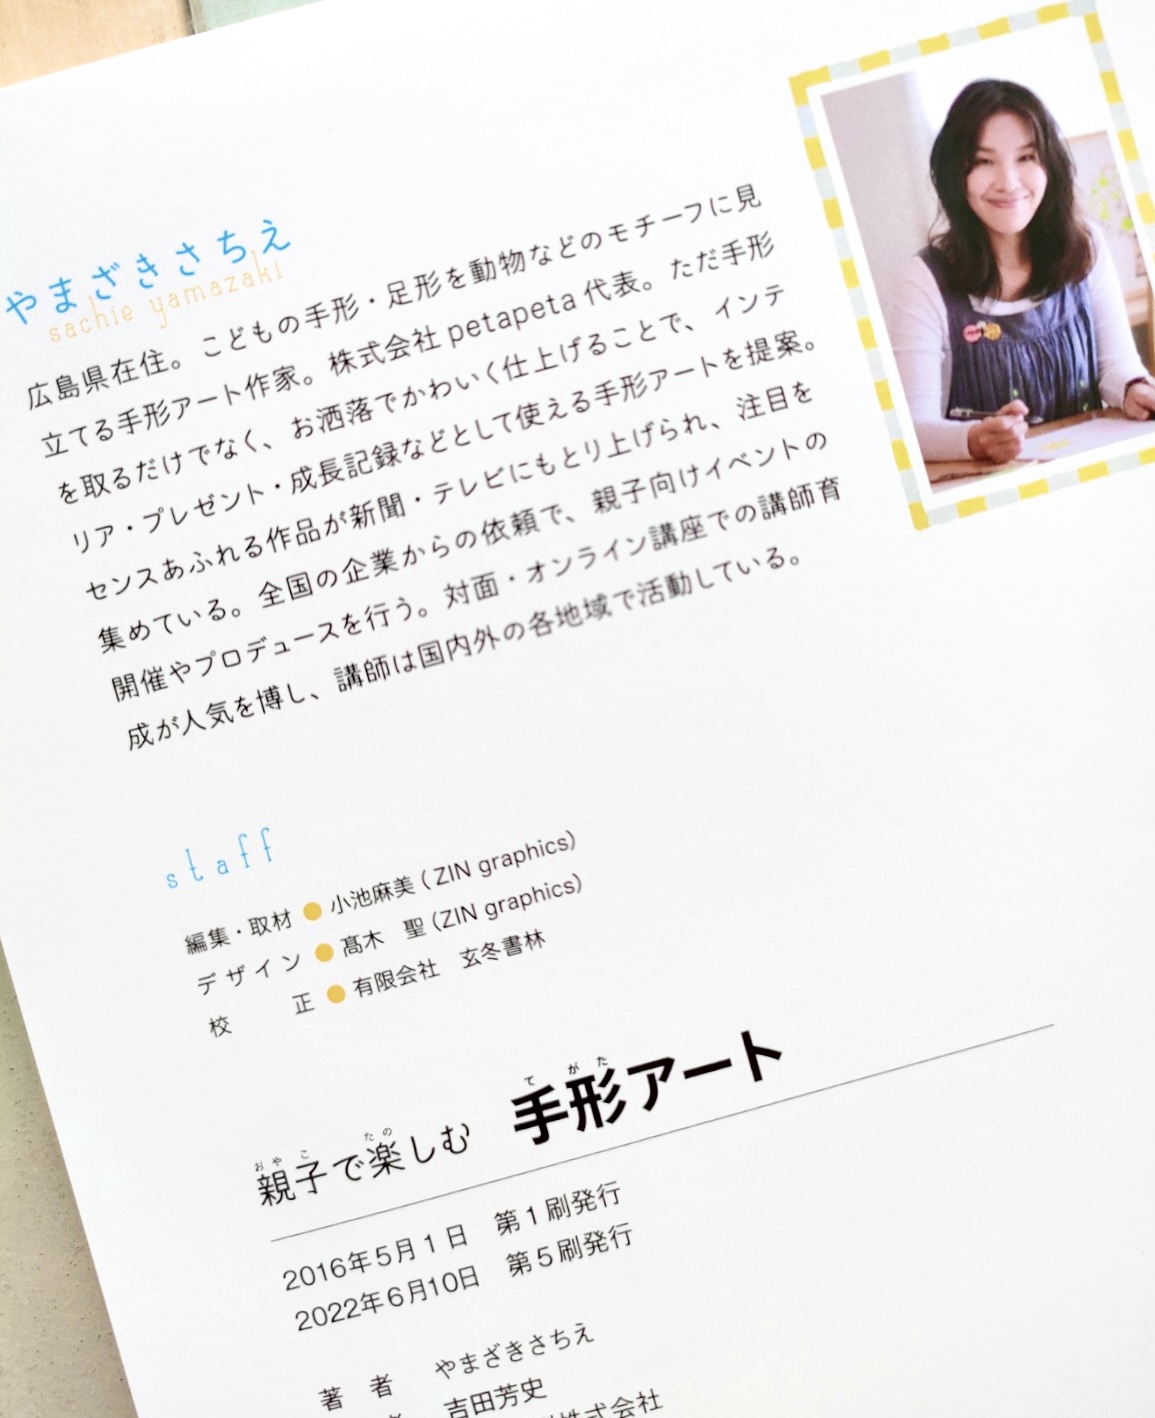 やまざきさちえ
sachie yamazaki
広島県在住。こどもの手形・足形を動物などのモチーフに見
立てる手形アート作家。株式会社 petapeta 代表。ただ手形
を取るだけでなく、お洒落でかわいく仕上げることで、インテ
リア・プレゼント・成長記録などとして使える手形アートを提案。
センスあふれる作品が新聞・テレビにもとり上げられ、注目を
集めている。全国の企業からの依頼で、親子向けイベントの
開催やプロデュースを行う。対面・オンライン講座での講師育
成が人気を博し、講師は国内外の各地域で活動している。
staff
編集・取材 ● 小池麻美 (ZIN graphics)
デザイン ● 髙木 聖 (ZIN graphics)
校 正 ● 有限会社 玄冬書林
おやこ たの てがた
親子で楽しむ 手形アート
2016年5月1日 第1刷発行
2022年6月10日 第5刷発行
著 者 やまざきさちえ
吉田芳史
株式会社